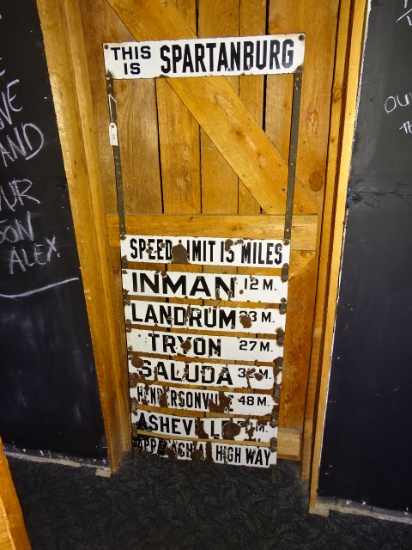 THIS IS SPARTANBURG
SPEED LIMIT 15 MILES
INMAN 12 M.
LANDRUM 23 M.
TRYON 27 M.
SALUDA M.
HENDERSONVILLE 48 M.
ASHEVILLE M.
APPROACH HIGHWAY
AND
OUR
SON
ALEX